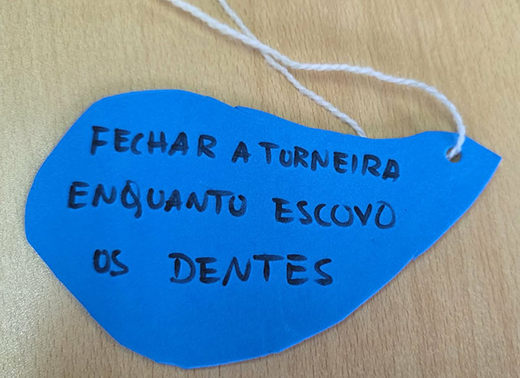 FECHAR A TORNEIRA
ENQUANTO ESCOVO
OS DENTES